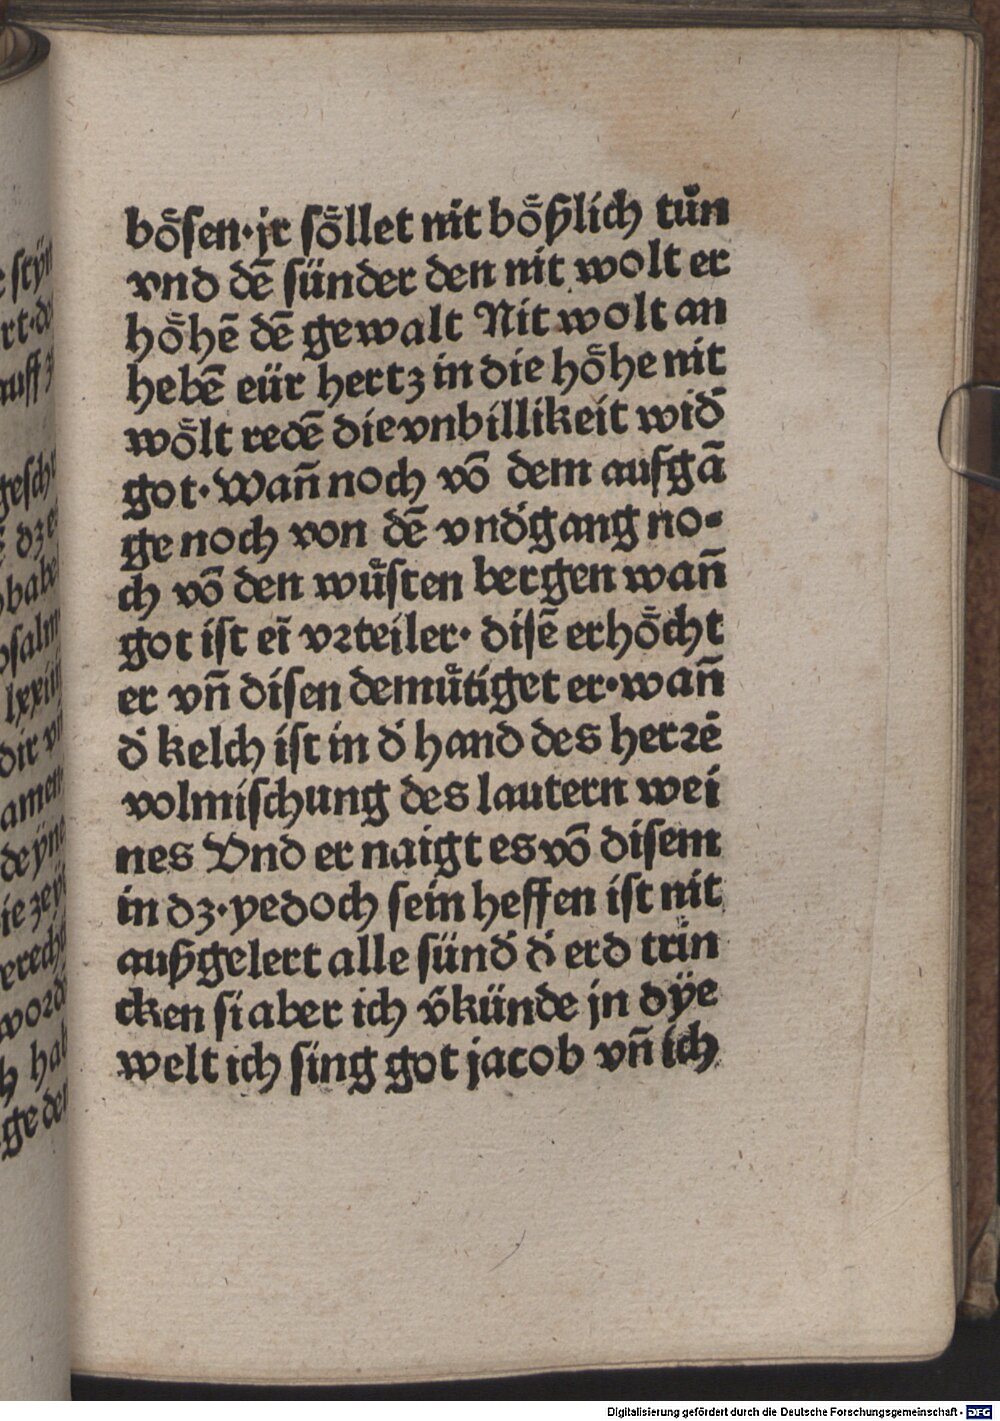 boͤsen·jr soͤllet nit boͤßlich tuͦn
vnd dē sünder den nit wolt er
hoͤhē dē gewalt Nit wolt an
hebē eür hertz in die hoͤhe nit
woͤlt redē die vnbillikeit wid̛
got·Wañ noch vō dem aufgā
ge noch von dē vnd̛gang no⸗
ch vō den wuͤsten bergen wañ
got ist eī vrteiler·disē erhoͤcht
er vñ disen demuͤtiget er·wañ
d̛ kelch ist in d̛ hand des herrē
volmischung des lautern wei
nes Vnd er naigt es vō disem
in dz·yedoch sein heffen ist nit
außgelert alle sünd̛ d̛ erd trin
cken si aber ich v̄künde jn dÿe
welt ich sing got jacob vñ ich
Digitalisierung gefördert durch die Deutsche Forschungsgemeinschaft - DFG